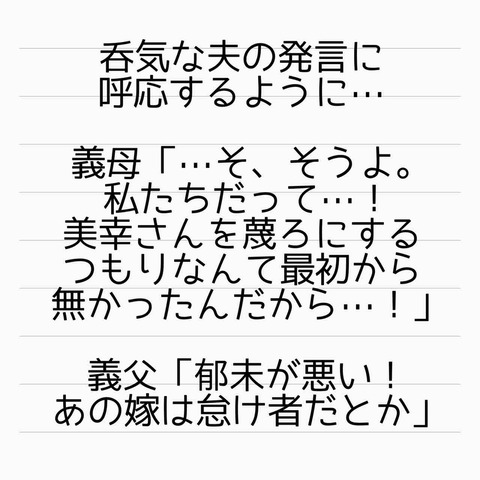 呑気な夫の発言に
呼応するように…
義母「…そ、そうよ。
私たちだって…！
美幸さんを蔑ろにする
つもりなんて最初から
無かったんだから…！」
義父「郁未が悪い！
あの嫁は怠け者だとか」